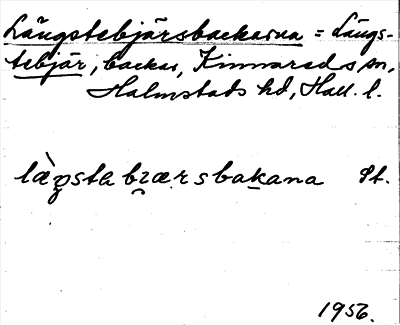 Längstebjärsbackarna = Längs-
tebjär, backar, Kinnared sn,
Halmstads hd, Hall. l.
læ̀ŋstabɿærsbakana St.
1956.